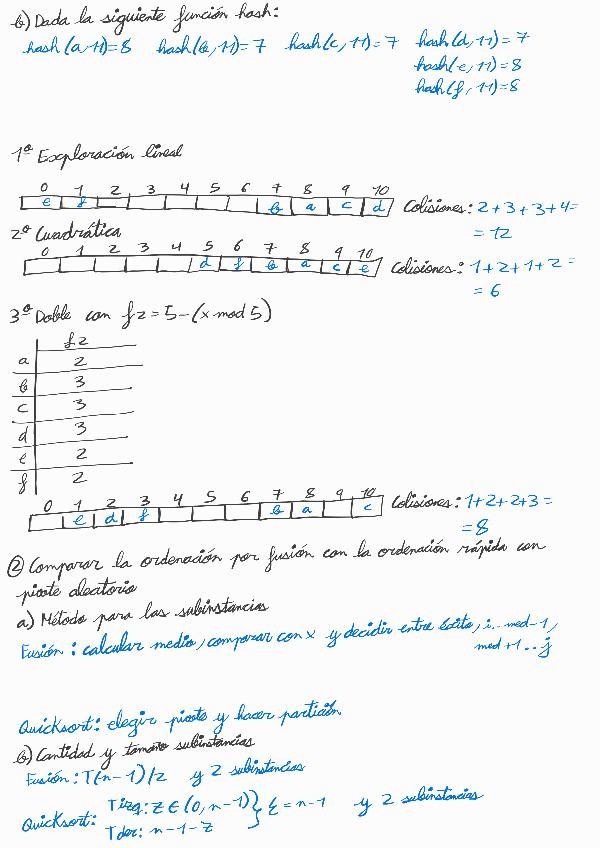 b) Dada la siguiente función hash:
hash(a,11)=8 hash(b,11)=7 hash(c,11)=7 hash(d,11)=7
hash(e,11)=8
hash(f,11)=8
1º Exploración lineal
0 1 2 3 4 5 6 7 8 9 10
e f b a c d Colisiones: 2+3+3+4=
= 12
2º Cuadrática
0 1 2 3 4 5 6 7 8 9 10
d f b a c e Colisiones: 1+2+1+2=
= 6
3º Doble con f2=5-(x mod 5)
f2
a 2
b 3
c 3
d 3
e 2
f 2
0 1 2 3 4 5 6 7 8 9 10
e d f b a c Colisiones: 1+2+2+3=
=8
② Comparar la ordenación por fusión con la ordenación rápida con
pivote aleatorio
a) Método para las subinstancias
Fusión: calcular medio, comparar con x y decidir entre éxito, i..med-1,
med+1..j
Quicksort: elegir pivote y hacer partición
b) Cantidad y tamaño subinstancias
Fusión: T(n-1)/2 y 2 subinstancias
Quicksort: Tizq: z∈(0,n-1) } Σ=n-1 y 2 subinstancias
Tder: n-1-z